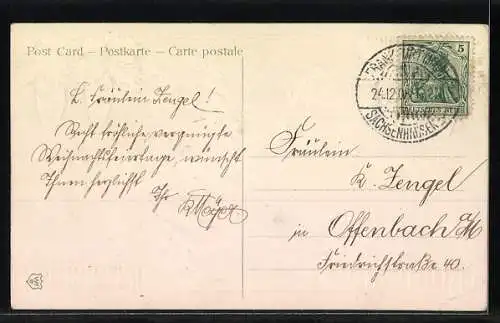 Post Card – Postkarte – Carte postale
L. Fräulein Zengel!
Recht fröhliche, vergnügte
Weihnachtsfeiertage, wünscht
Ihnen herzlichst
Ihr
K. Meyer
5
24.12.
SACHSENHAUSEN
Fräulein
K. Zengel
in Offenbach a/M
Friedrichstraße 40.